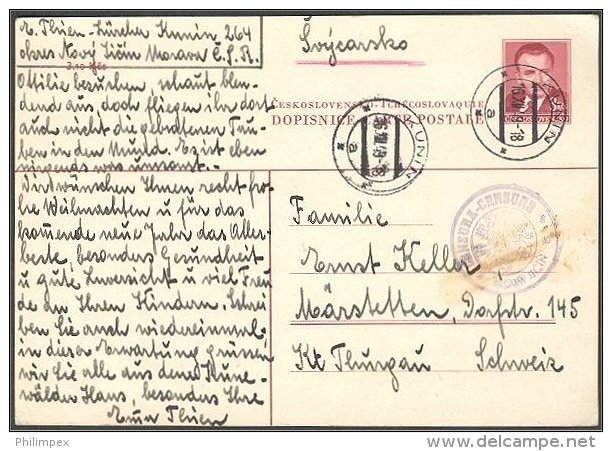 E. Thien-Zürcher Kunin 264
okres Nový Jičín Morava Č.S.R.
3.10 Kčs
Švýcarsko
Ottilie besuchen, schaut blen-
dend aus, doch fliegen ihr dort
auch nicht die gebratenen Tau-
ben in den Mund. Es ist eben
nirgends was umsonst.
Wir wünschen Ihnen recht fro-
he Weihnachten u für das
kommende neue Jahr das Aller-
beste, besonders Gesundheit
u gute Zuversicht u viel Freu
de an Ihren Kindern. Schrei
ben Sie auch wiedereinmal,
in dieser Erwartung grüssen
wir Sie alle aus dem Kune-
wälder Haus, besonders Ihre
Thien
ČESKOSLOVENSKO TCHÉCOSLOVAQUIE
DOPISNICE CARTE POSTALE
KUNIN
a
KUNIN
a
Familie
Ernst Keller
Märstetten, Dorfstr. 145
Kt Thurgau Schweiz
CENSURA-CENSURA
Philimpex
delcampe.net